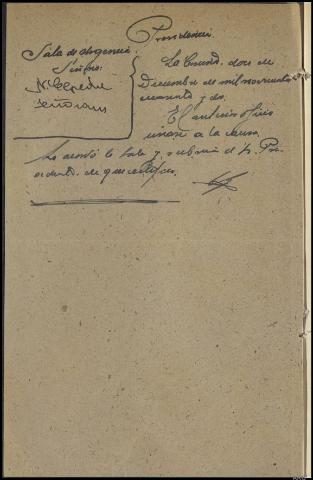 Providencia
Sala de Urgencia
Señores:
Cepeda
Señorans
La Coruña, doce de
Diciembre de mil novecientos
cuarenta y dos.
El anterior oficio
unase a la causa,
Lo acordó la Sala y rubrica el Sr. Pre-
sidente, de que certifico.